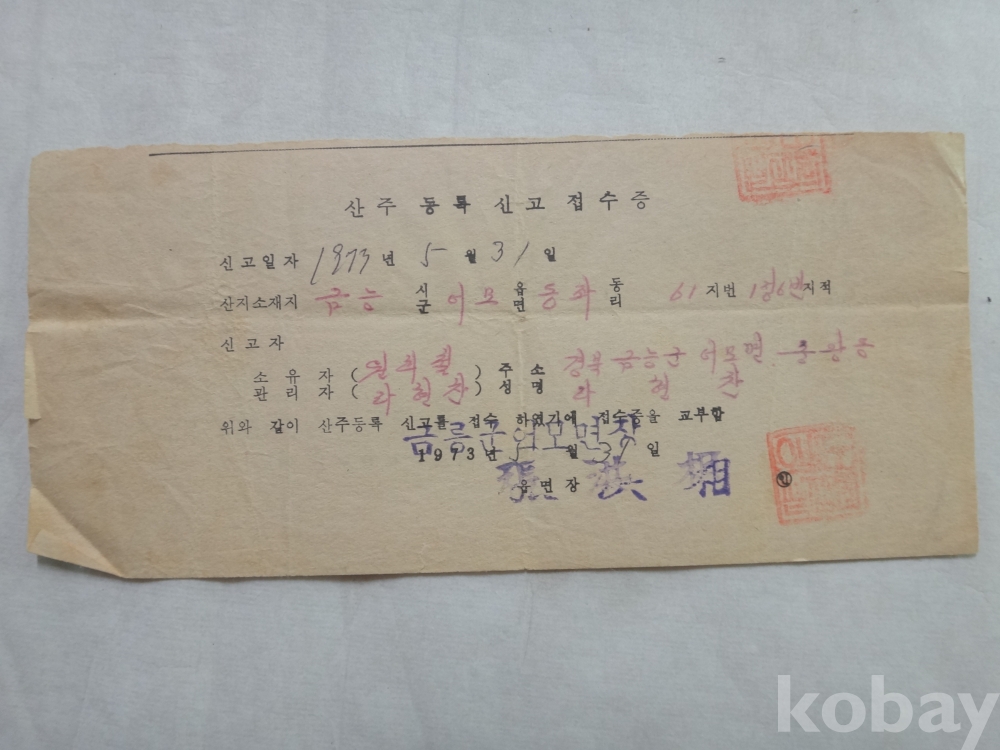 산주 등록 신고 접수증
신고일자 1973년 5월 31일
산지소재지 금능 시군 어모 읍면 동좌 동리 61 지번 지적
신고자
소유자 ( ) 주소 경북 금능군 어모면
관리자 (라현찬) 성명 라현찬
위와 같이 산주등록 신고를 접수 하였기에 접수증을 교부함
금릉군어모면장
1973년 5월 31일
읍면장 張 洪 相 인
kobay